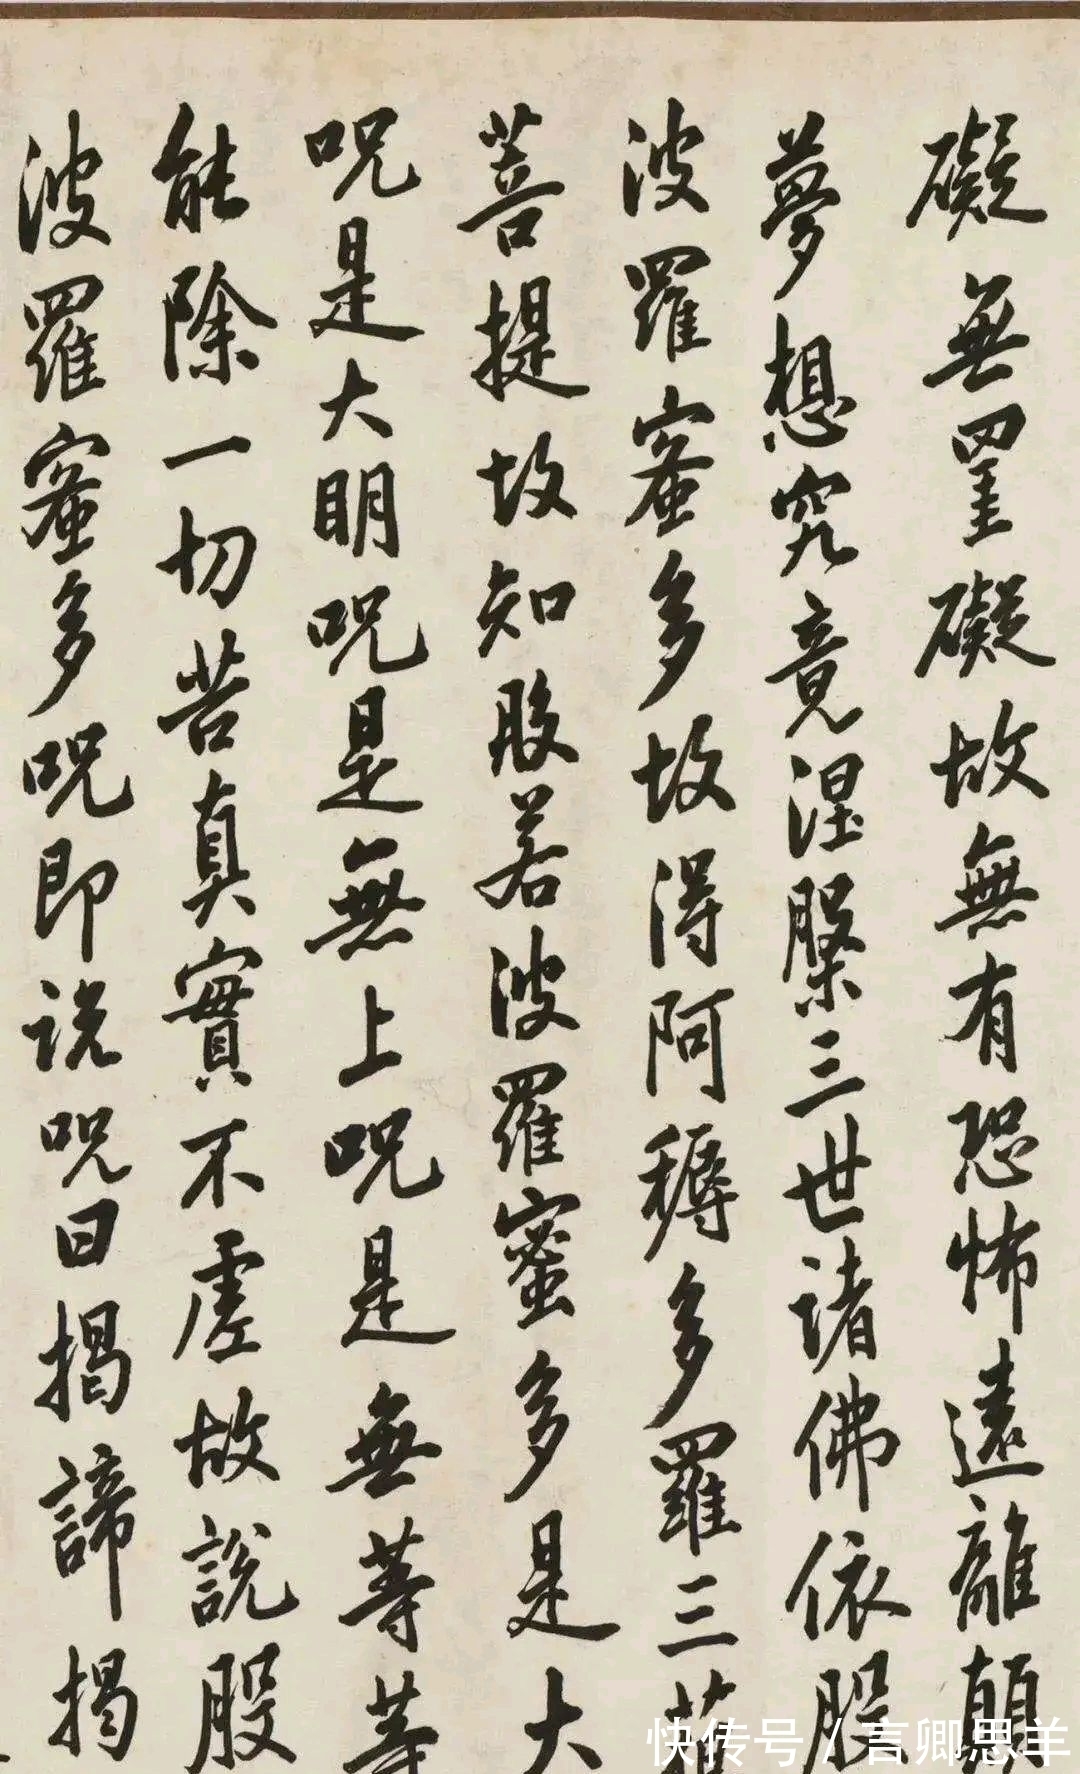 礙無罣礙故無有恐怖遠離顛
夢想究竟涅槃三世諸佛依般
波羅蜜多故得阿耨多羅三藐
菩提故知般若波羅蜜多是大
呪是大明呪是無上呪是無等等
能除一切苦真實不虛故說般
波羅蜜多呪即説呪曰揭諦揭
快传号/言卿思羊